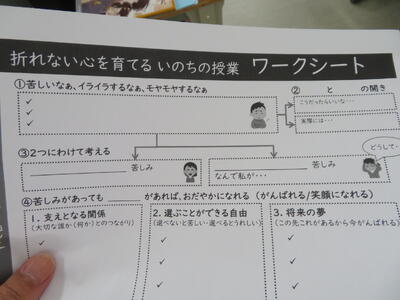 折れない心を育てる いのちの授業 ワークシート
①苦しいなぁ、イライラするなぁ、モヤモヤするなぁ
✓
✓
✓
② と の開き
こうだったらいいな・・・
実際には・・・
③2つにわけて考える
苦しみ
苦しみ
なんで私が・・・
どうして・
④苦しみがあっても があれば、おだやかになれる (がんばれる/笑顔になれる)
1. 支えとなる関係
(大切な誰か(何か)とのつながり)
✓
2. 選ぶことができる自由
(選べないと苦しい・選べるとうれしい)
✓
✓
✓
3. 将来の夢
(この先これがあるから今がんばれる)
✓
✓
✓